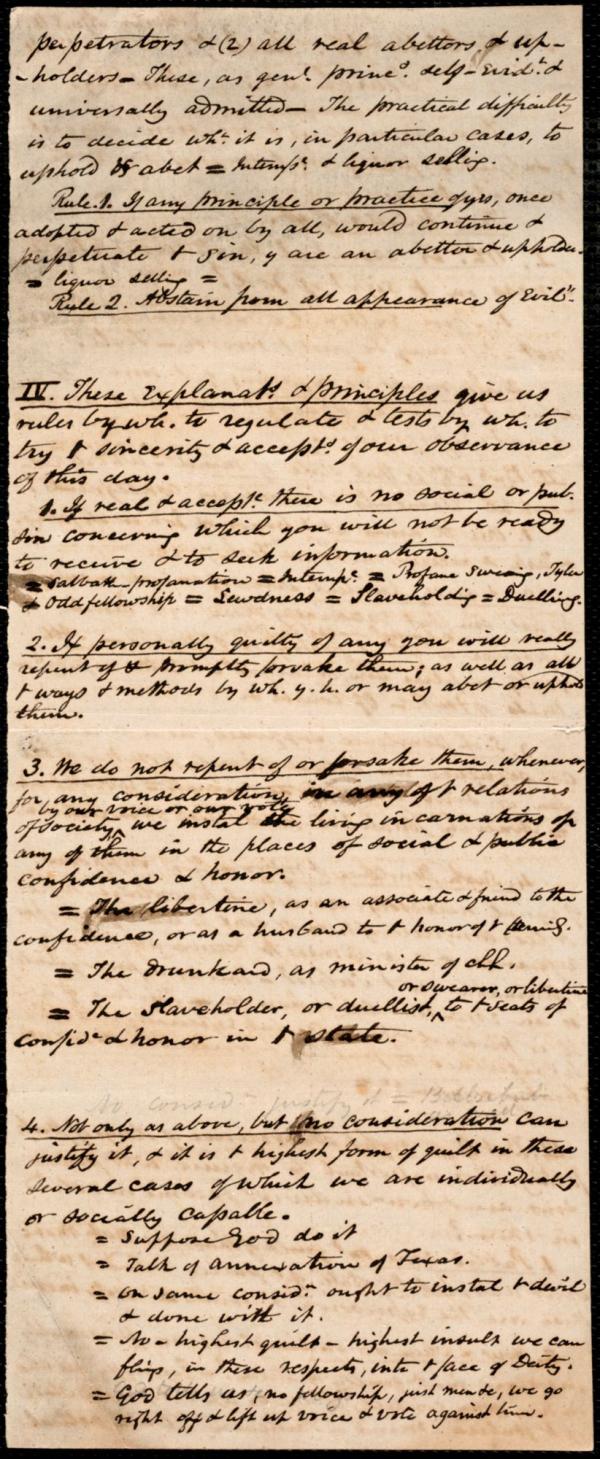 perpetrators & (2) all real abettors & up-
-holders = These, as genl. princs. self-Evidt. &
universally admitted - The practical difficulty
is to decide wht. it is, in particular cases, to
uphold & abet = Intempe. & liquor sellig.
Rule. 1. If any principle or practice of yrs, once
adopted & acted on by all, would continue &
perpetuate t sin, y are an abettor & upholder -
= liquor sellig =
Rule 2. Abstain from all appearance of Evil".
IV. These Explanats. & principles give us
rules by wh. to regulate & tests by wh. to
try t sincerity & accepts. of our observance
of this day.
1. If real & accepte. there is no social or pub.
sin concerning which you will not be ready
to receive & to seek information.
= Sabbath-profanation = Intempe. = Profane Swearig, Tyler
& Oddfellowship = Lewdness = Slaveholdig = Duelling.
2. If personally guilty of any you will really
repent of & promptly forsake them; as well as all
t ways & methods by wh. y. h. or may abet or uphold
them.
3. We do not repent of or forsake them, whenever,
for any consideration, in any of t relations
by our voice or our vote
of society, ^ we instal the living incarnations of
any of them in the places of social & public
confidence & honor.
= The libertine, as an associate & friend to the
confidence, or as a husband to t honor of t
= The drunkard, as minister of chh.
or swearer, or libertine
= The Slaveholder, or duellist, ^ to t seats of
confide. & honor in t state.
No consid. justify it =
4. Not only as above, but no consideration can
justify it, & it is t highest form of guilt in these
several cases of which we are individually
or socially capable.
= Suppose God do it
= Talk of annexation of Texas.
= On same considn. ought to instal t devil
& done with it.
= No - highest guilt - highest insult we can
flig, in these respects, into t face of Deity.
= God tells us, no fellowship, , we go
right off & lift up voice & vote against him.